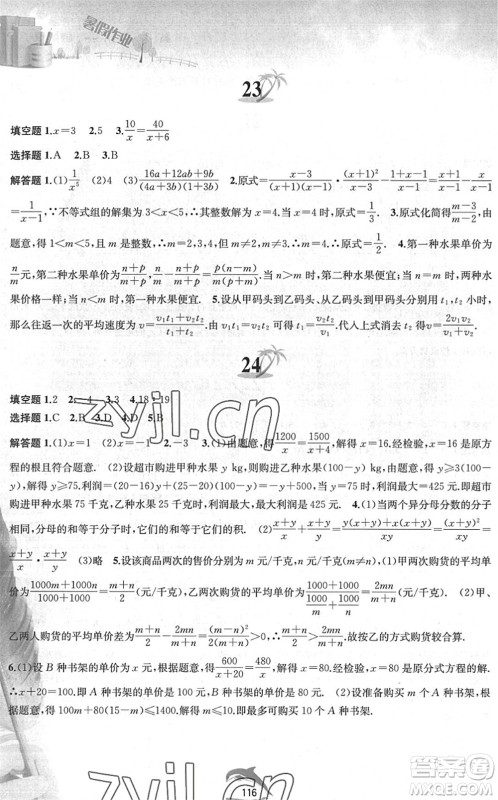 暑假作业
23
填空题 1.x=3 2.5 3.10/x=40/(x+6)
选择题 1.A 2.B 3.B
解答题 1.(1)1/x⁵ (2)4 (3)(16a+12ab+9b)/((4a+3b)(1+3b)) 2.原式=(x-3)/((x+1)(x-1))·(x+1)²/(x-3)-(1+x)/(x-1)=(x+1)/(x-1)-x/(x-1)
=1/(x-1),∵不等式组的解集为3<x<5,∴其整数解为x=4,当x=4时,原式=1/3. 3.原式化简得(m-3)/(m-2),由
题意,得1<m<5,则m=2,3,4,但m≠2,m≠3.∴m=4,原式=1/2. 4.第一种水果单价为
n/m元,第二种水果单价为(n+p)/(m+p),(n+p)/(m+p)-n/m=p(m-n)/(m(m+p)).当n>m时,第二种水果便宜;当n=m时,两种
水果价格一样;当n<m时,第一种水果便宜. 5.设从甲码头到乙码头、乙码头到甲码头所用t₁,t₂小时,
那么往返一次的平均速度为v=(v₁t₁+v₂t₂)/(t₁+t₂),由题意,可得v₁t₁=v₂t₂.代入上式消去t₁,t₂得v=2v₁v₂/(v₁+v₂).
24
选择题 1.C 2.B 4.D 5.B
解答题 1.(1)x=1 (2)x=-1 3.(1)由题意,得1200/x=1500/(x+4),解得x=16.经检验,x=16是原分式
方程的根且符合题意. (2)设超市购进甲种水果y kg,则购进乙种水果(100-y)kg,由题意,得y≥3(100-y)
解得y≥75.利润=(20-16)y+(25-20)(100-y)=-y+500,所以当y最小时,利润最大=425.即当超市
购进甲种水果75千克,乙种水果25千克时,利润最大,最大利润是425元. 4.(1)当两个异分母分数的分子
相同,分母的和等于分子时,它们的和等于它们的积. (2)(x+y)/x+(x+y)/y=(y(x+y)+x(x+y))/xy=(x+y)²/xy=
(x+y)/x·(x+y)/y (3)略 5.设该商品两次的售价分别为m元/千克、n元/千克(m≠n),(1)甲两次购货的平均单价为
(1000m+1000n)/(1000+1000)=(m+n)/2(元/千克),乙两次购货的平均单价为(1000+1000)/(1000/m+1000/n)=2mn/(m+n)(元/千克) (2)甲、
乙两人购货的平均单价差为(m+n)/2-2mn/(m+n)=(m-n)²/(2(m+n))>0,∴(m+n)/2>2mn/(m+n).故乙的购货方式合算.
6.(1)设B种书架的单价为x元,根据题意,得600/(x+20)=480/x.解得x=80.经检验,x=80是原分式方程的解.
∴x+20=100.即A种书架的单价为100元,B种书架的单价为80元. (2)设准备购买m个A种书架,根据
题意,得100m+80(15-m)≤1400.解得m≤10.所以最多可购买10个A种书架.
116
zyjl.cn
zyjl.cn
答案圈
MXQE.COM